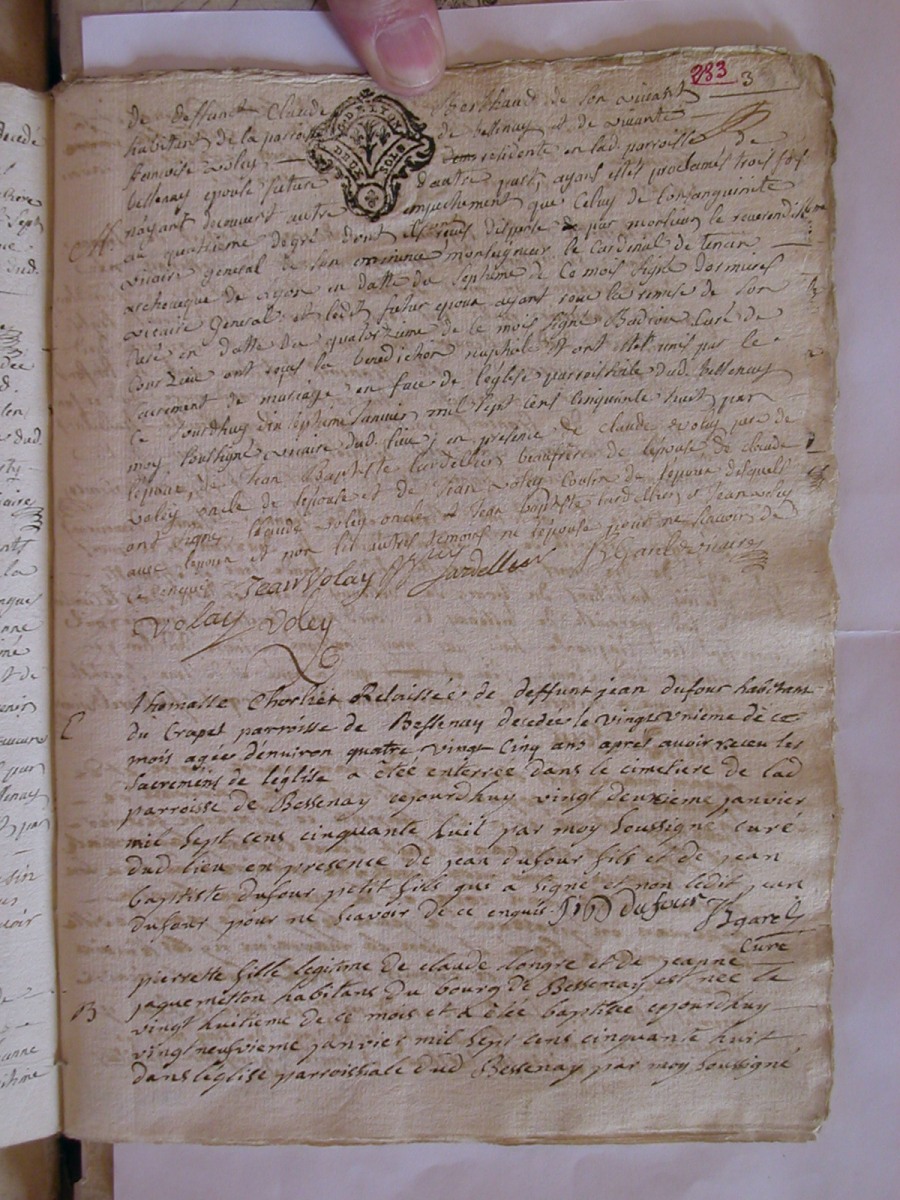 283 3
de deffunt Claude Berthaud de son vivant
habitant de la parroisse de bessenay et de vivante
francoise voley demt residente en lad. parroisse de
bessenay epouse future d'autre part, ayans estés proclamés trois fois
nayant decouvert autre empechement que Celuy de Consanguinité
M
au quatrieme degré dont ils ont dispense par monsieur le reverendissime
vicaire general de son eminence monseigneur le Cardinal de tencin
archeveque de Lyon en datte du septieme de ce mois signé
vicaire General; et ledit futur epoux ayant la remise de son
Curé en datte du quatorzieme de le mois signé Badroux Curé de
Courzieu ont reçus la benediction nuptiale et ont été unis par le
sacrement de mariage en face de leglise parroissiale dud. bessenay
Ce jourdhuy dixseptieme janvier mil sept cens Cinquante huit par
moy soussigné vicaire dud. lieu; en presence de claude voley pere de
lepoux, de Jean Baptiste Lardellier beaufrere de lépouse de claude
voley oncle de lepouse et de jean voley Cousin de lepoux desquels
ont signé Claude voley oncle et Jean baptiste Lardellier et Jean voley
avec lepoux et non les autres temoins ne lépouse pour ne scavoir de
ce enquis Jean Volay Lardellier JBGarel vicaire
Volay Voley
E
thomasse Chorliet Relaissée de deffunt jean dufour habitant
du Crapet parroisse de Bessenay decedée le vingt unieme de ce
mois agée denviron quatre vingt cinq ans aprés avoir receu les
sacremens de leglise a étée enterrée dans le cimetiere de lad
parroisse de Bessenay cejourdhuy vingt deuxieme janvier
mil sept cens cinquante huit par moy soussigné curé
dud lieu en presence de jean dufour fils et de jean
baptiste dufour petit fils qui a signé et non ledit jean
dufour pour ne scavoir de ce enquis. JB dufour JBgarel
Curé
pierrette fille legitime de claude longre et de jeanne
jaquemetton habitans du bourg de Bessenay est née le
B
vingt huitieme de ce mois et a étée baptisée cejourdhuy
vingt neufvieme janvier mil sept cens cinquante huit
dans léglise parroissiale dud Bessenay par moy soussigné